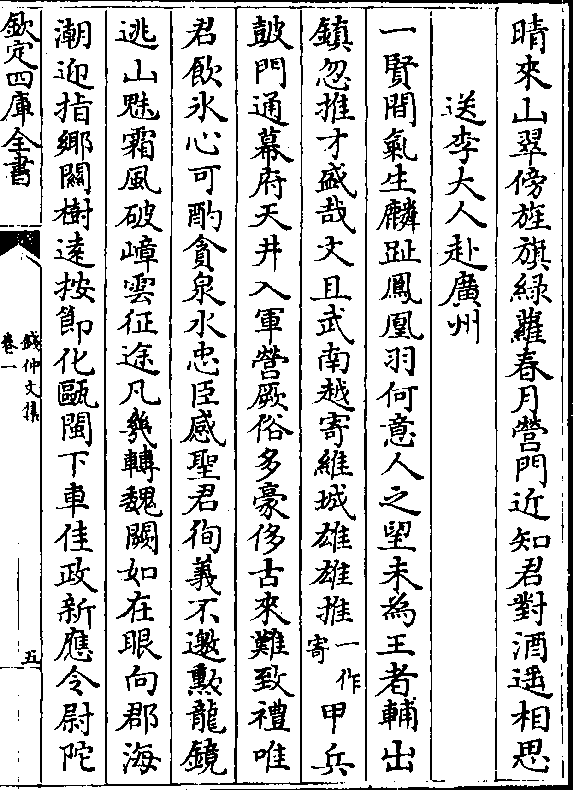 晴來山翠傍旌旗綠蘿春月營門近知君對酒遥相思
送李大人赴廣州
一賢間氣生麟趾鳳凰羽何意人之望未為王者輔出
鎮忽推才盛哉文且武南越寄維城雄雄推一作寄甲兵
鼓門通幕府天井入軍營厥俗多豪侈古來難致禮唯
君飲氷心可酌貪泉水忠臣感聖君徇義不邀勲龍鏡
逃山魅霜風破嶂雲征途凡幾轉魏闕如在眼向郡海
潮迎指鄉關樹逺按節化甌閩下車佳政新應令尉陀
欽定四庫全書
錢仲文集
卷一
五